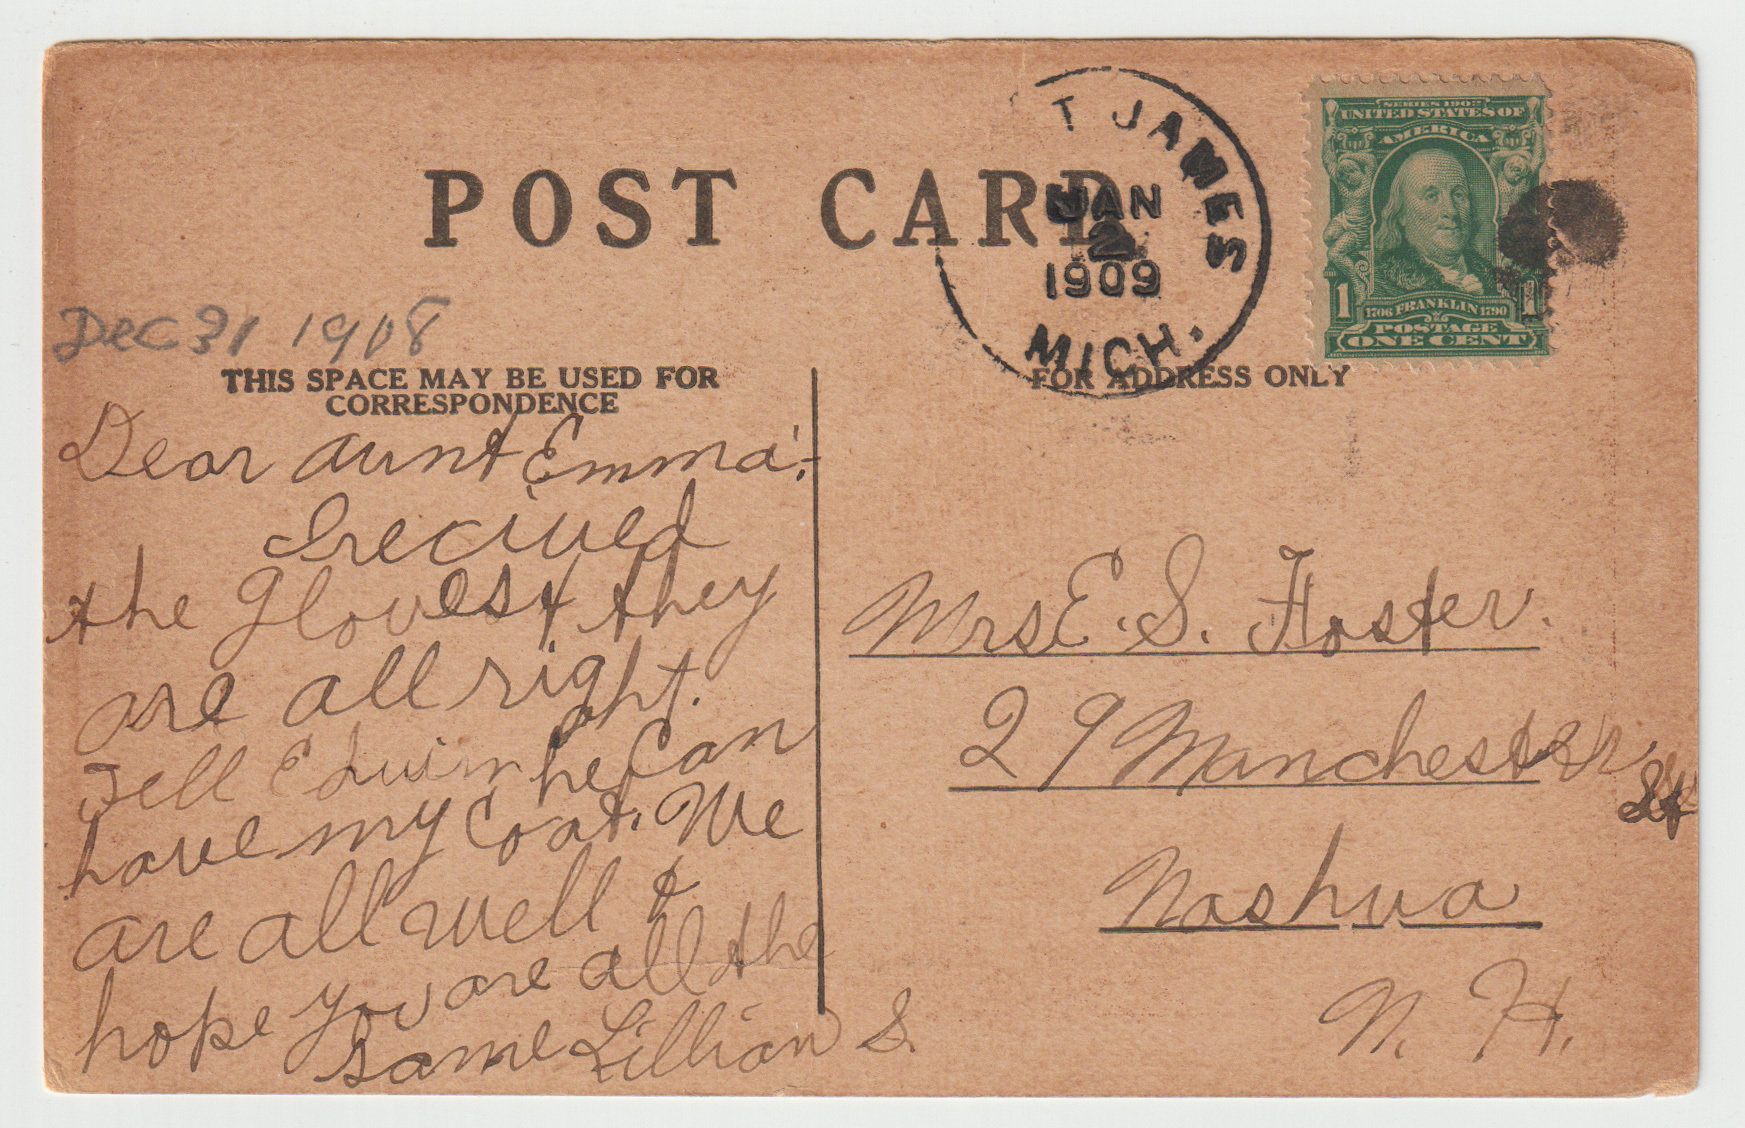 POST CARD
T JAMES
JAN
2
1909
MICH.
SERIES 1902
UNITED STATES OF
AMERICA
1706 FRANKLIN 1790
1 1
POSTAGE
ONE CENT
Dec 31 1908
THIS SPACE MAY BE USED FOR
CORRESPONDENCE
FOR ADDRESS ONLY
Dear Aunt Emma:-
I recived
the gloves & they
are all right.
Tell Edwin he can
have my coat. We
are all well &
hope you are all the
same Lillian S.
Mrs E. S. Foster.
29 Manchester
St
Nashua
N. H.